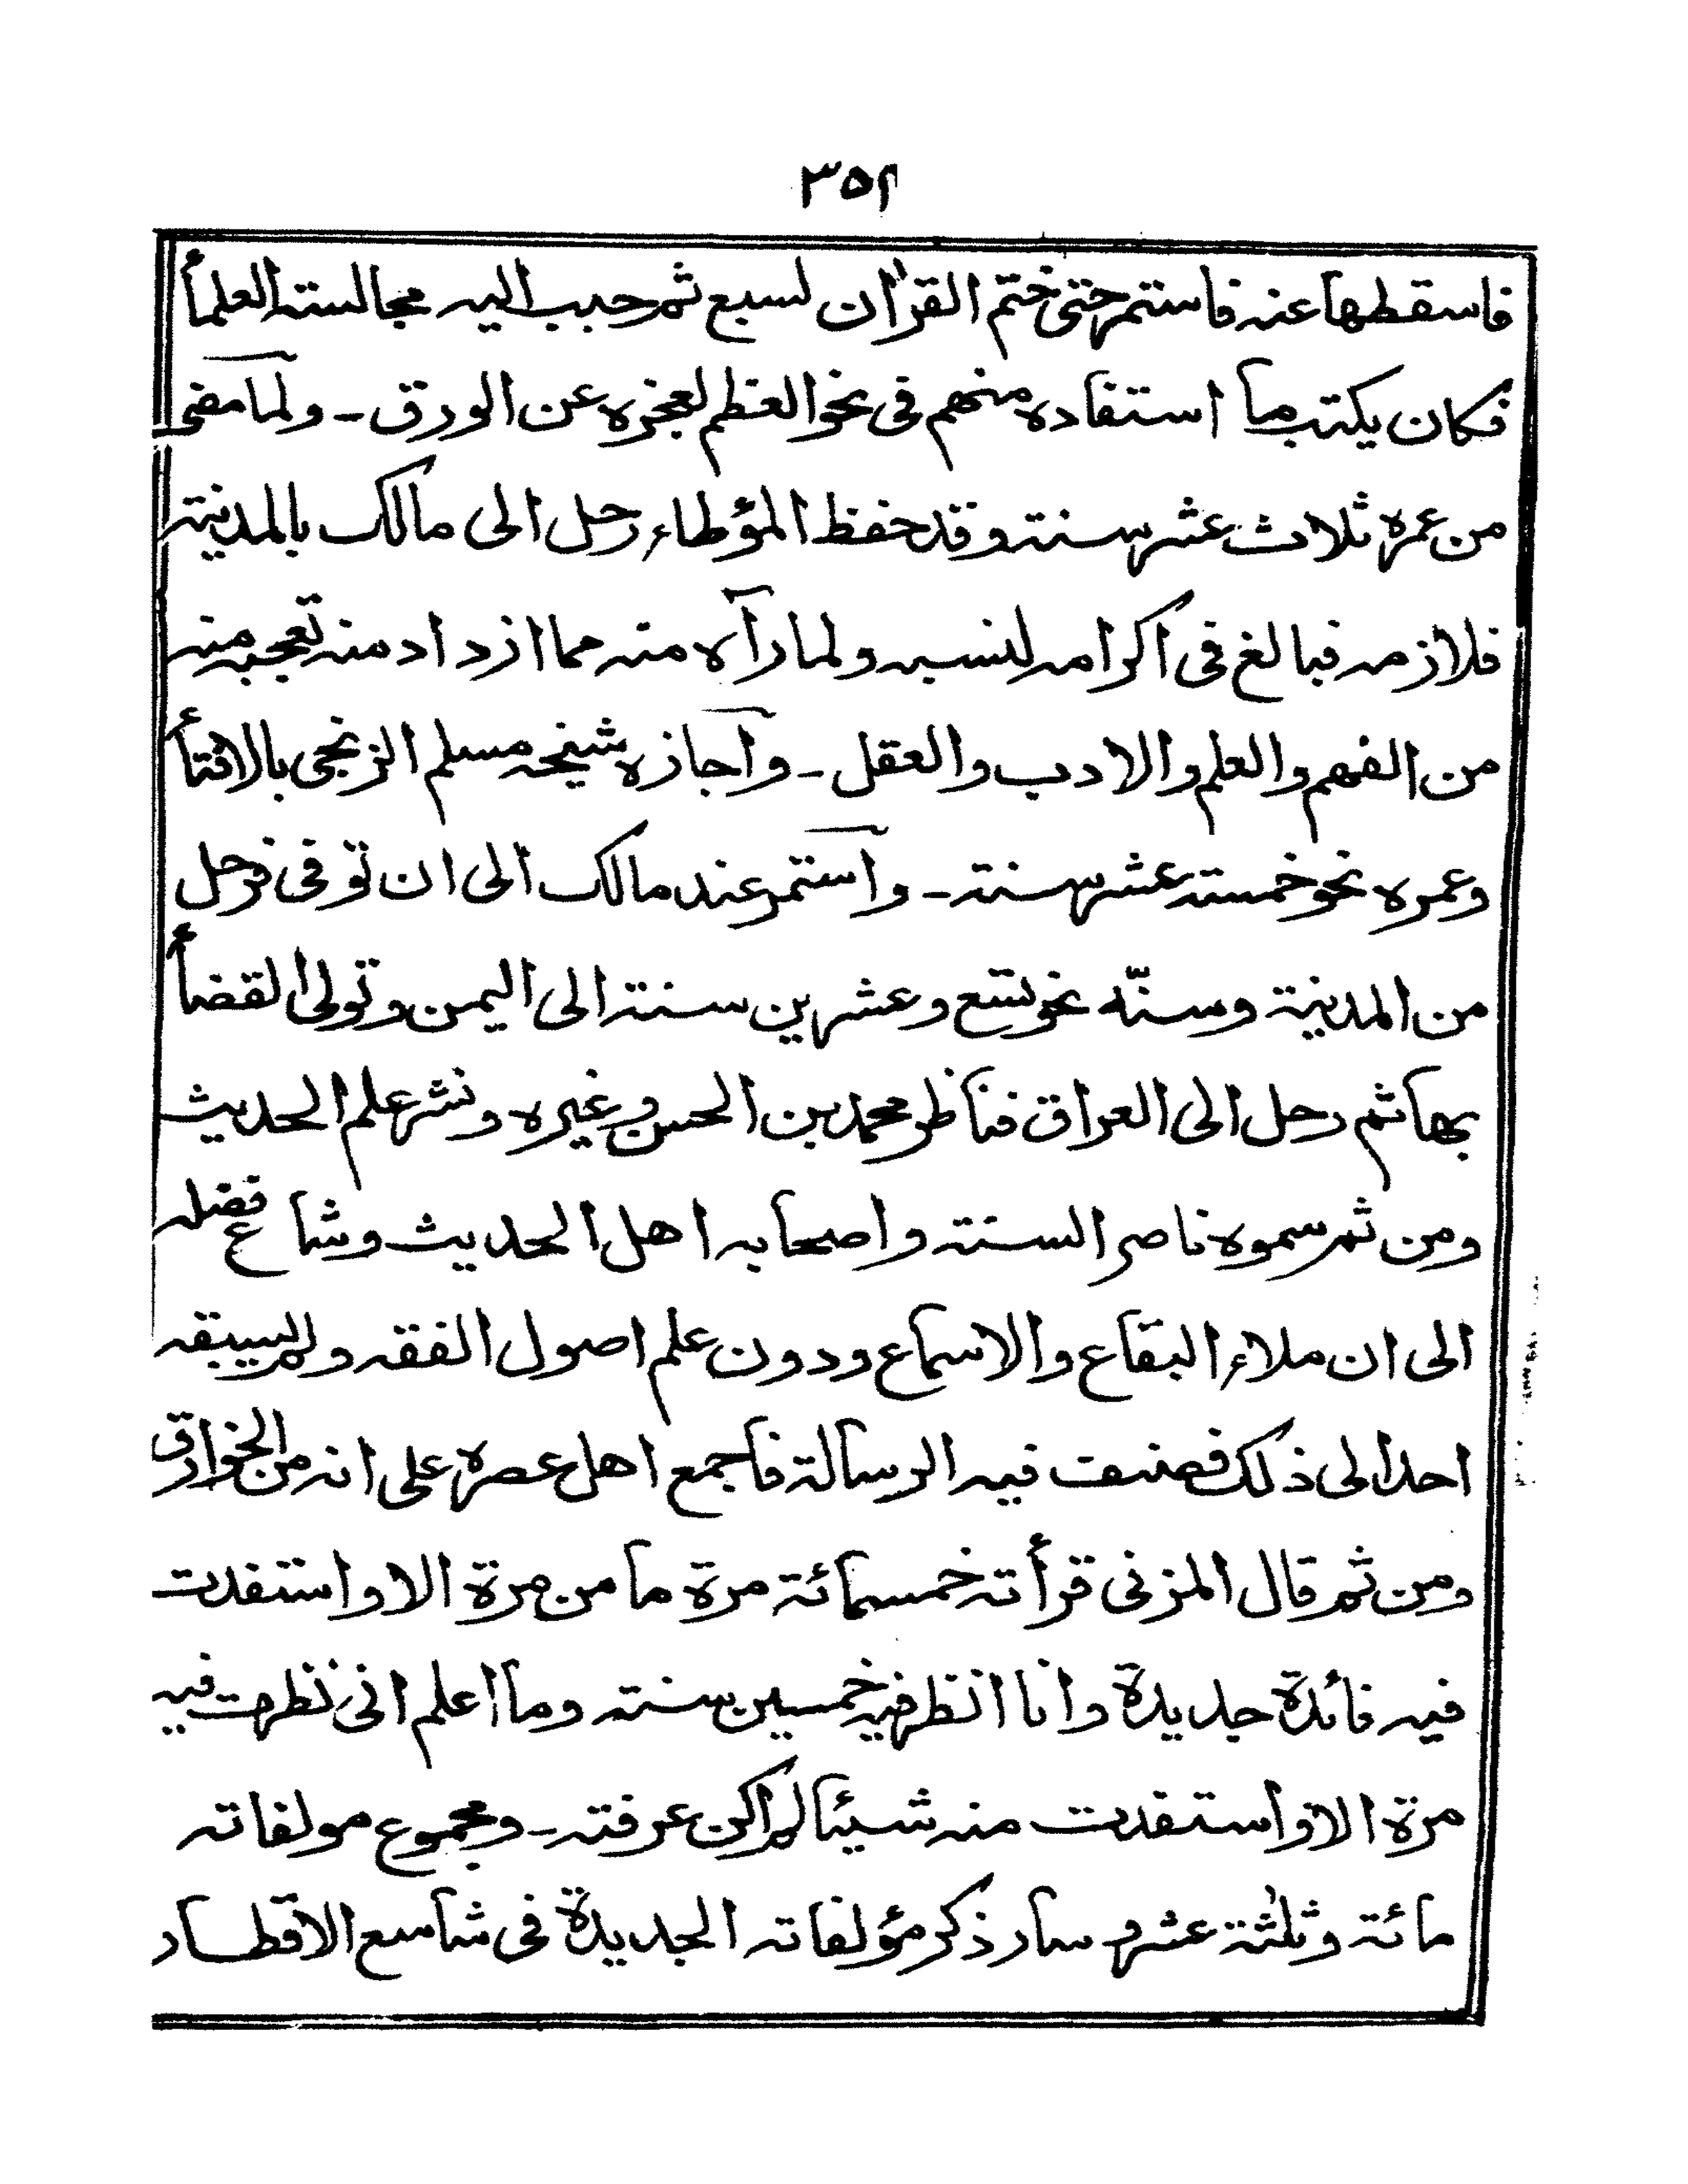 ٣٥٢
فاسقطها عنه فاستمر حتى ختم القرأن لسبع ثم حبب اليه مجالسة العلمأ
فكان يكتب ما استفاده منهم فى نحو العظم لعجزه عن الورق ـ ولما مضى
من عمره ثلاث عشر سنة وقد حفظ المؤطاء رحل الى مالك بالمدينة
فلازمه فبالغ فى اكرامه لنسبه ولما رآه منه مما ازداد منه تعجبه منه
من الفهم والعلم والادب والعقل ـ واجازه شيخه مسلم الزنجى بالافتأ
وعمره نحو خمسة عشر سنة ـ واستمر عند مالك الى ان توفى فرحل
من المدينة وسنّه نحو تسع وعشرين سنة الى اليمن وتولى القضأ
بها ثم رحل الى العراق فناظر محمد بن الحسن وغيره ونشر علم الحديث
ومن ثم سموه ناصر السنة واصحابه اهل الحديث وشاع فضله
الى ان ملاء البقاع والاسماع ودون علم اصول الفقه ولم يسبقه
احد الى ذلك فصنف فيه الرسالة فاجمع اهل عصره على انه من الخوارق
ومن ثم قال المزنى قرأته خمسمائة مرة ما من مرة الا واستفدت
فيه فائدة جديدة وانا انظر فيه خمسين سنة وما اعلم انى نظرت فيه
مرة الا واستفدت منه شيئا لم اكن عرفته ـ ومجموع مولفاته
مائة وثلثة عشر و سار ذكر مؤلفاته الجديدة فى شاسع الاقطار